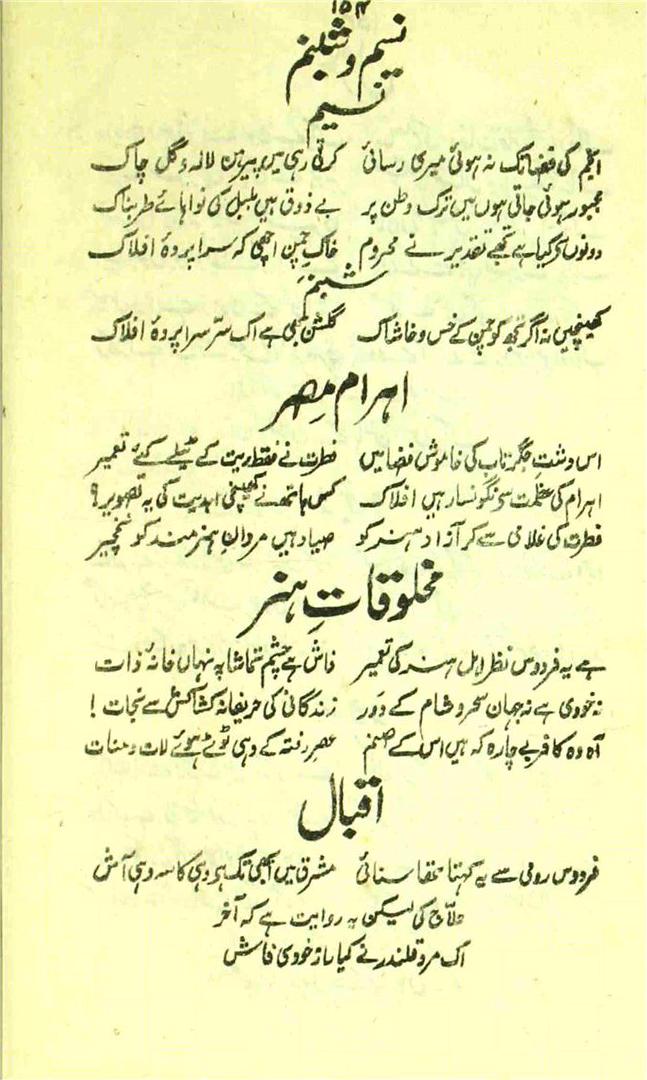 ۱۵۴
نسیم و شبنم
نسیم
انجم کی فضا تک نہ ہوئی میری رسائی کرتی رہی میں پیرہن لالہ و گل چاک
مجبور ہوئی جاتی ہوں میں ترک وطن پر بے ذوق ہیں بلبل کی نواہائے طربناک
دونوں سے کیا ہے تجھے تقدیر نے محروم خاکِ چمن اچھی کہ سراپردۂ افلاک
شبنم
کھینچیں نہ اگر تجھ کو چمن کے خس و خاشاک گلشن بھی ہے اک سّرِ سراپردۂ افلاک
اہرام مِصر
اس دشتِ جگر تاب کی خاموش فضا میں فطرت نے فقط ریت کے ٹیلے کئے تعمیر
اہرام کی عظمت سے نگونسار ہیں افلاک کس ہاتھ نے کھینچی ابدیت کی یہ تصویر؟
فطرت کی غلامی سے کر آزاد ہنر کو صیاد ہیں مردانِ ہنرمند کو نخچیر
مخلوقاتِ ہنر
ہے یہ فردوس نظر اہل ہنر کی تعمیر فاش ہے چشم تماشا پہ نہاں خانۂ ذات
نہ خودی ہے نہ جہان سحر و شام کے دَور زندگانی کی حریفانہ کشاکش سے نجات !
آہ وہ کافر بے چارہ کہ ہیں اس کے صنم عصر رفتہ کے وہی ٹوٹے ہوئے لات و منات
اقبال
فردوس رومی سے یہ کہتا تھا سنائی مشرق میں ابھی تک ہے وہی کاسہ وہی آش
حلّاج کی لیکن یہ روایت ہے کہ آخر
اک مرد قلندر نے کیا راز خودی فاش